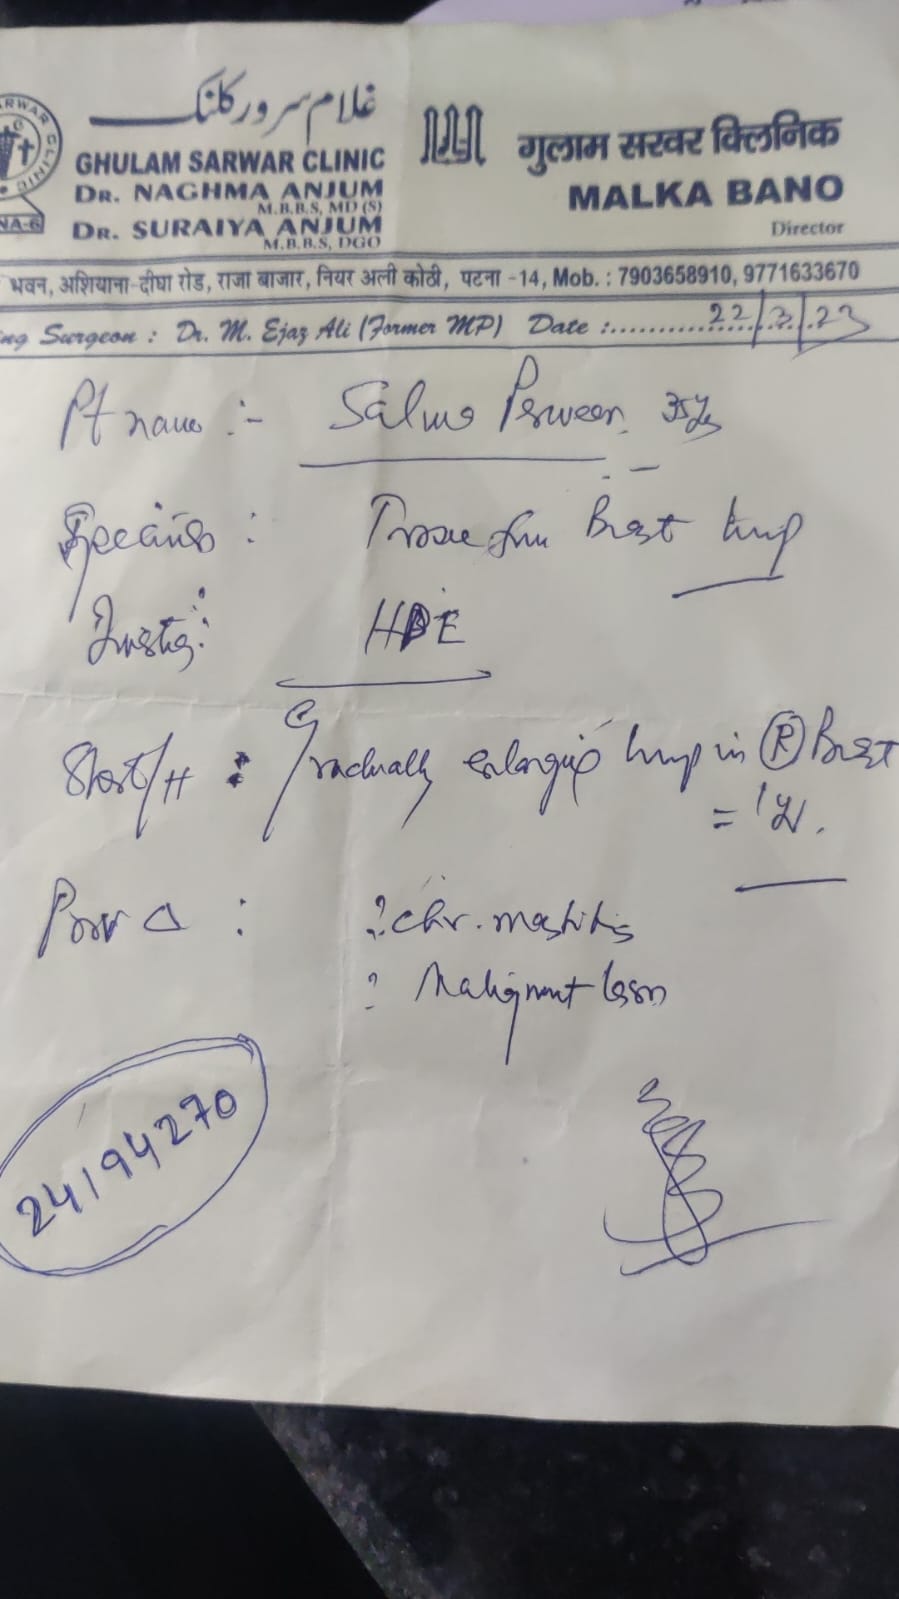 غلام سرور کلنک
GHULAM SARWAR CLINIC
DR. NAGHMA ANJUM
M.B.B.S, MD (S)
DR. SURAIYA ANJUM
M.B.B.S, DGO
गुलाम सरवर क्लिनिक
MALKA BANO
Director
भवन, अशियाना-दीघा रोड, राजा बाजार, नियर अली कोठी, पटना -14, Mob. : 7903658910, 9771633670
ng Surgeon : Dr. M. Ejaz Ali (Former MP) Date :............22/3/23
Pt name :- Salma Perween 35 
: Tissue from Breast lump
HPE
Short/H : Gradually enlarging lump in Ⓡ Breast
= 1
Prov Δ : ? Chr. mastitis
? Malignant lesion
24194270